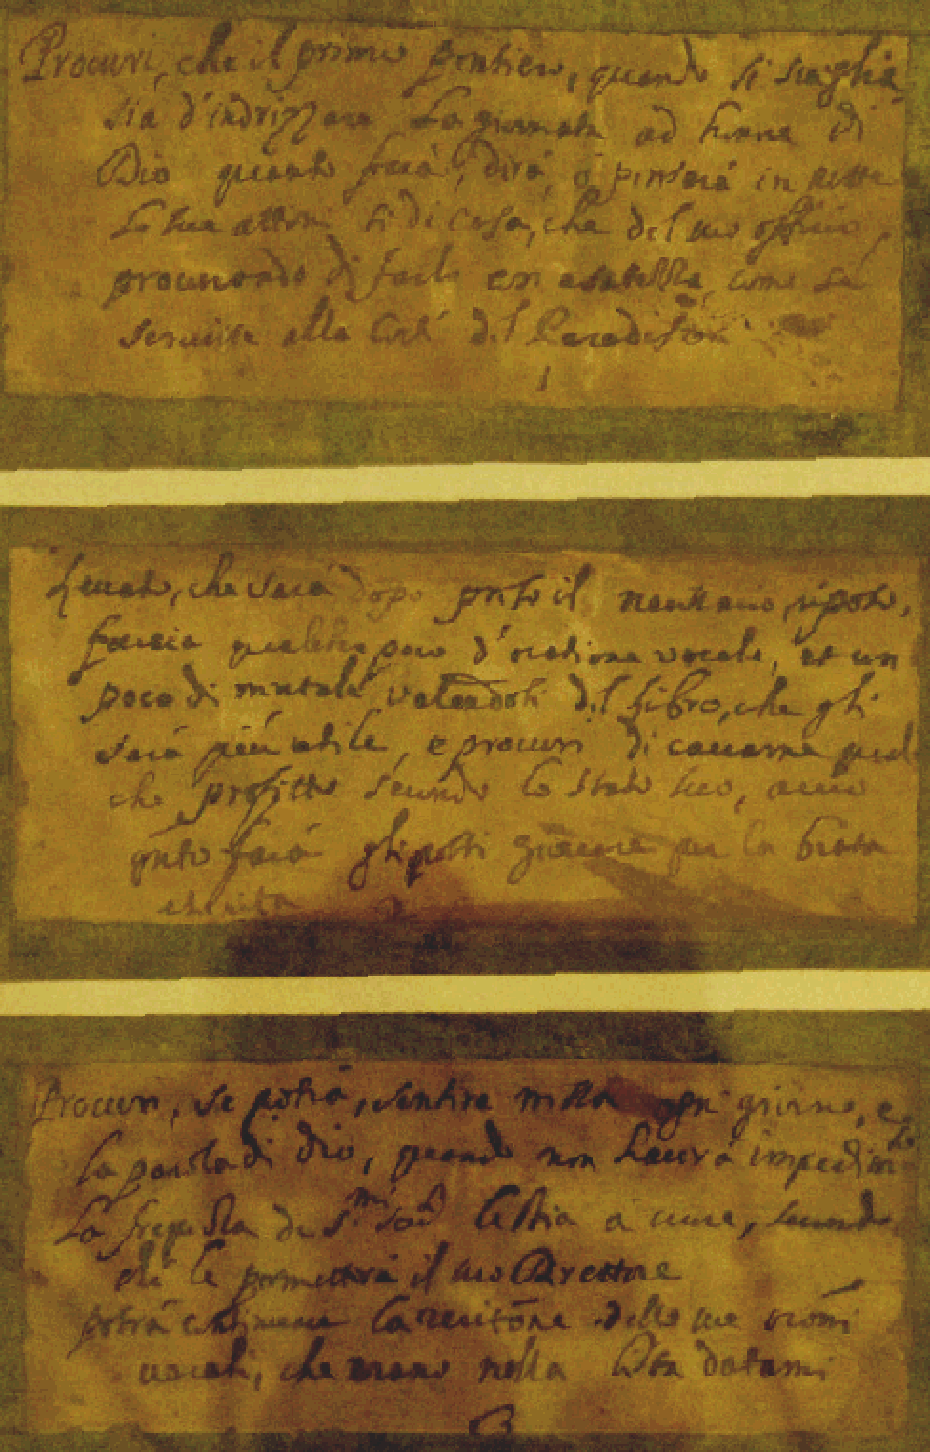 Procuri, che il primo pensiero, quando si sveglia
sia d'indrizzare la giornata ad honore di
Dio quanto farà, dirà, ò penserà in tutte
le sue attioni si di casa, che del suo offitio,
procurando di farle con esatezza, come se
servisse alla Corte del Paradiso
1
Levato, che sarà dopo preso il necessario riposo,
faccia qualche poco d'oratione vocale, et un
poco di mentale valendosi del libro, che gli
sarà più utile, e procuri di cavarne qual
che profitto secondo lo stato suo, acciò
farà gli possi giovare per la beata
eternità
2
Procuri, se potrà, sentire messa ogni giorno, e
la parola di Dio, quando non haverà impedim.to
La di S.mi à cuore, secondo
che le permetterà il suo Direttore
potrà continuare la recitõne delle sue
vocali, che erano nella lista datami
3